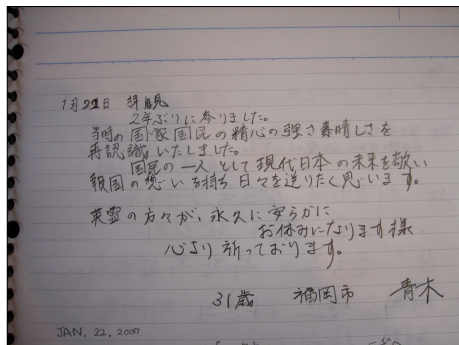 1月21日 拝見
2年ぶりに参りました。
当時の国家国民の精心の強さ素晴しさを
再認識いたしました。
国民の一人として現代日本の未来を敬い
報国の想いを持ち日々を送りたく思います。
英霊の方々が、永久に安らかに
お休みになります様
心より祈っております。
31歳 福岡市 青木
JAN. 22, 2007